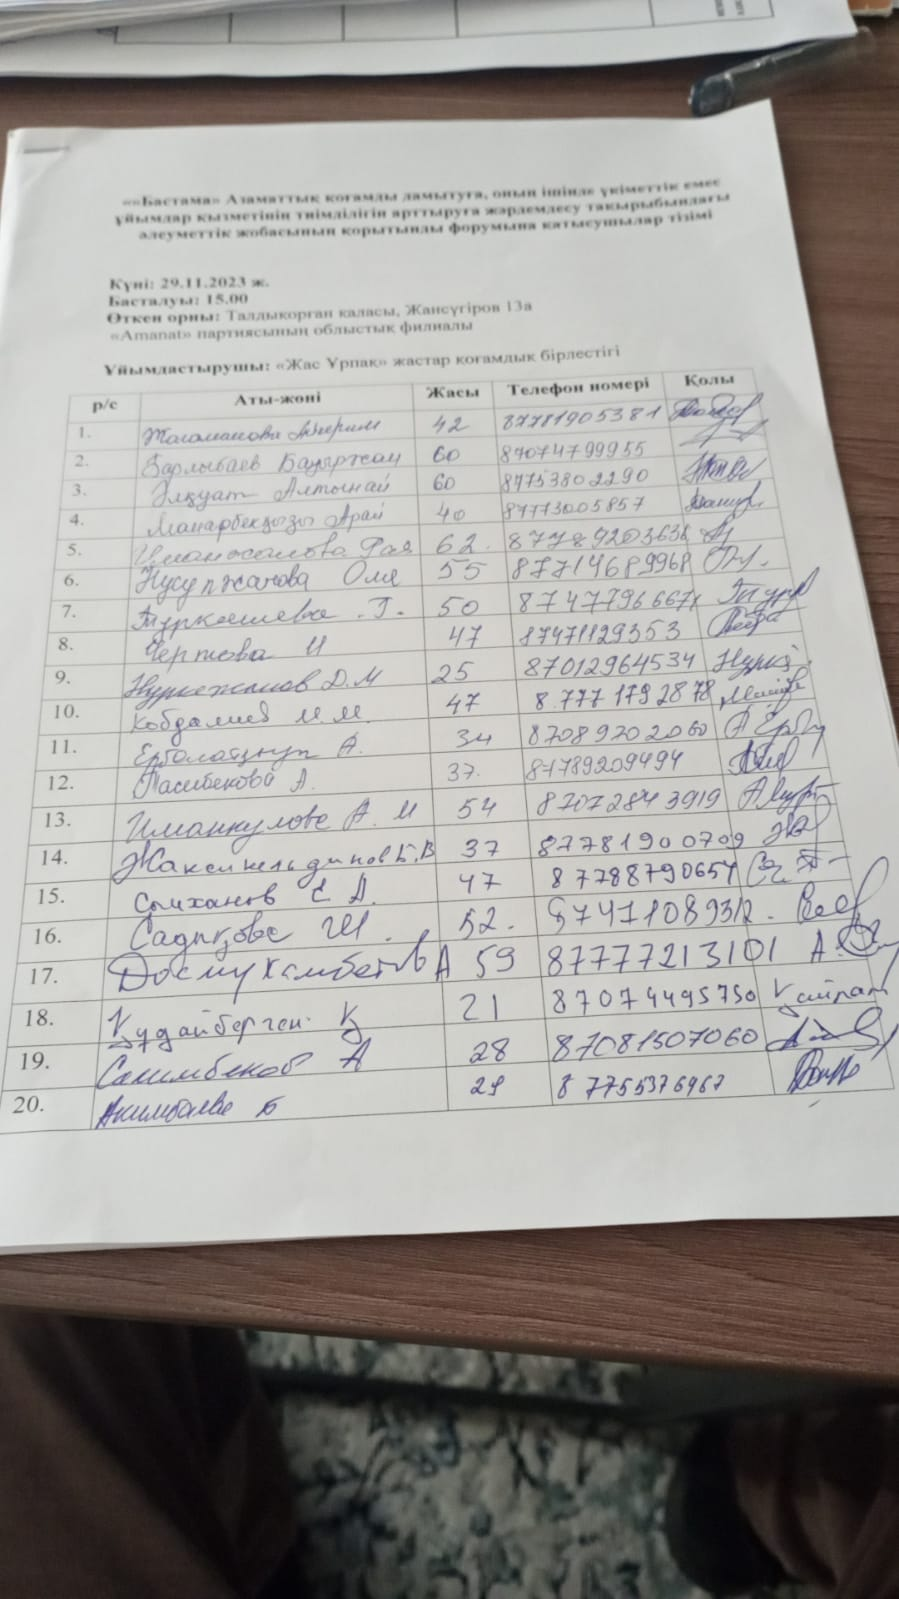 ««Бастама» Азаматтық қоғамды дамытуға, оның ішінде үкіметтік емес
ұйымдар қызметінің тиімділігін арттыруға жәрдемдесу тақырыбындағы
әлеуметтік жобасының қорытынды форумына қатысушылар тізімі
Күні: 29.11.2023 ж.
Басталуы: 15.00
Өткен орны: Талдықорған қаласы, Жансүгіров 13а
«Amanat» партиясының облыстық филиалы
Ұйымдастырушы: «Жас Ұрпақ» жастар қоғамдық бірлестігі
р/с Аты-жөні Жасы Телефон нөмірі Қолы
1. 42 87781905381
2. Барлыбаев Бауыржан 60 87074799955
3. Элқуат Алтынай 60 87753802290
4. Манарбекқызы Арай 40 87773005857
5. Рая 62. 87789203636
6. Нусупжанова Оля 55 87714689968
7. Г. 50 87477966671
8. Чертова И 47 87471129353
9. Нуркежанов Д.М 25 87012964534
10. Кобдалиев М.М. 47 8.777 179 28 78
11. А. 34 87089702060
12. Пасибекова А. 37. 87789209494
13. Иманкулова А. М 54 87072843919
14. Жаксикельдинов Б.В 37 87781900709
15. Сыйханов Е Д. 47 87788790657
16. Садықова Ш. 52. 87471089312.
17. Досмухамбетов А 59 87777213101
18. Құдайберген Қ 21 87074495750 Қайрат
19. Салимбеков А 28 87081507060
20. Акимбаева Б 29 87755376967